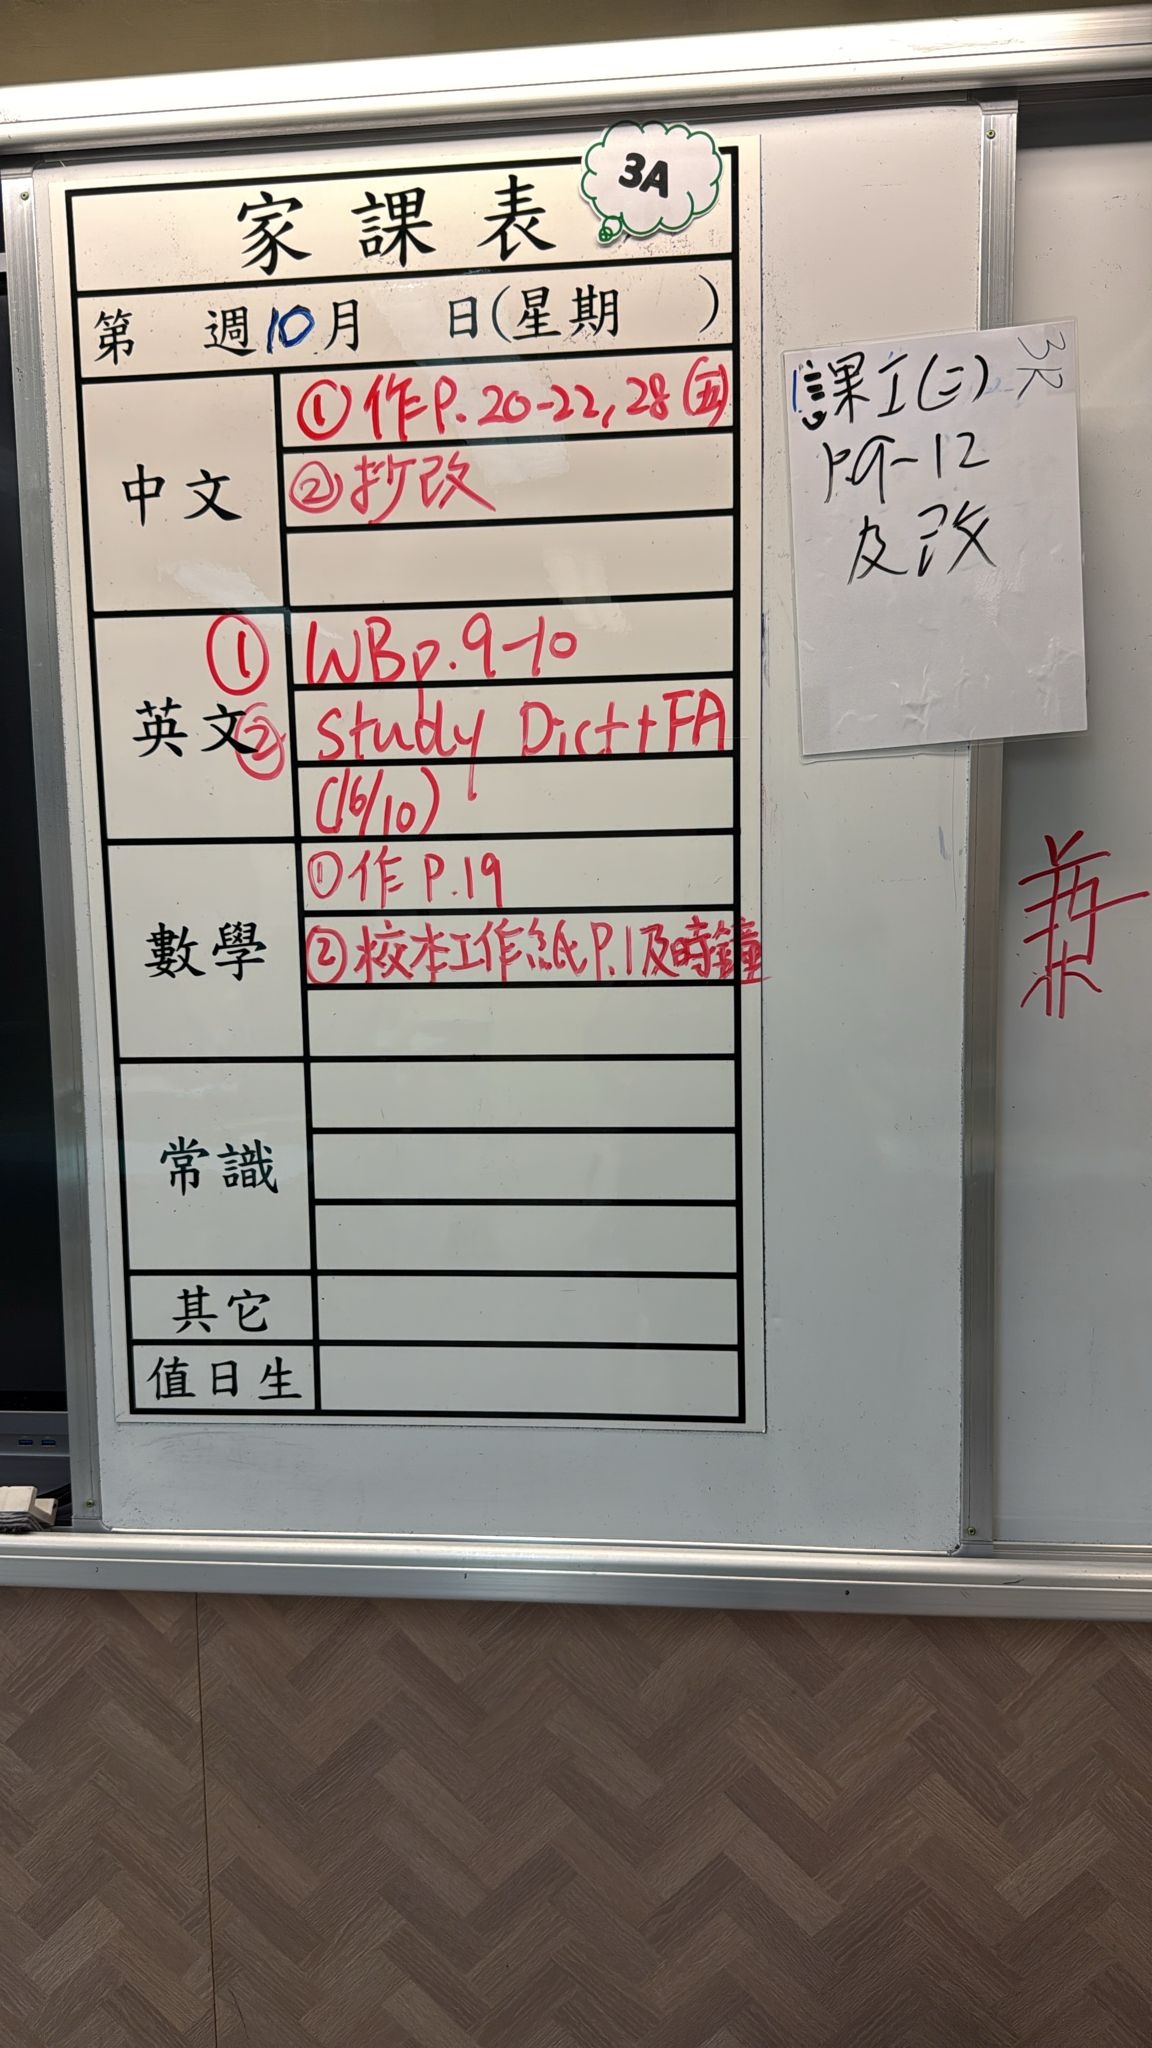 家課表
3A
第 週10月 日(星期 )
中文
①作P.20-22,28(五)
②抄改
英文
① WBp.9-10
② Study Dict+FA
(16/10)
數學
①作P.19
②校本工作紙P.1及時鐘
常識
其它
值日生
課工(二)
P.9-12
及改